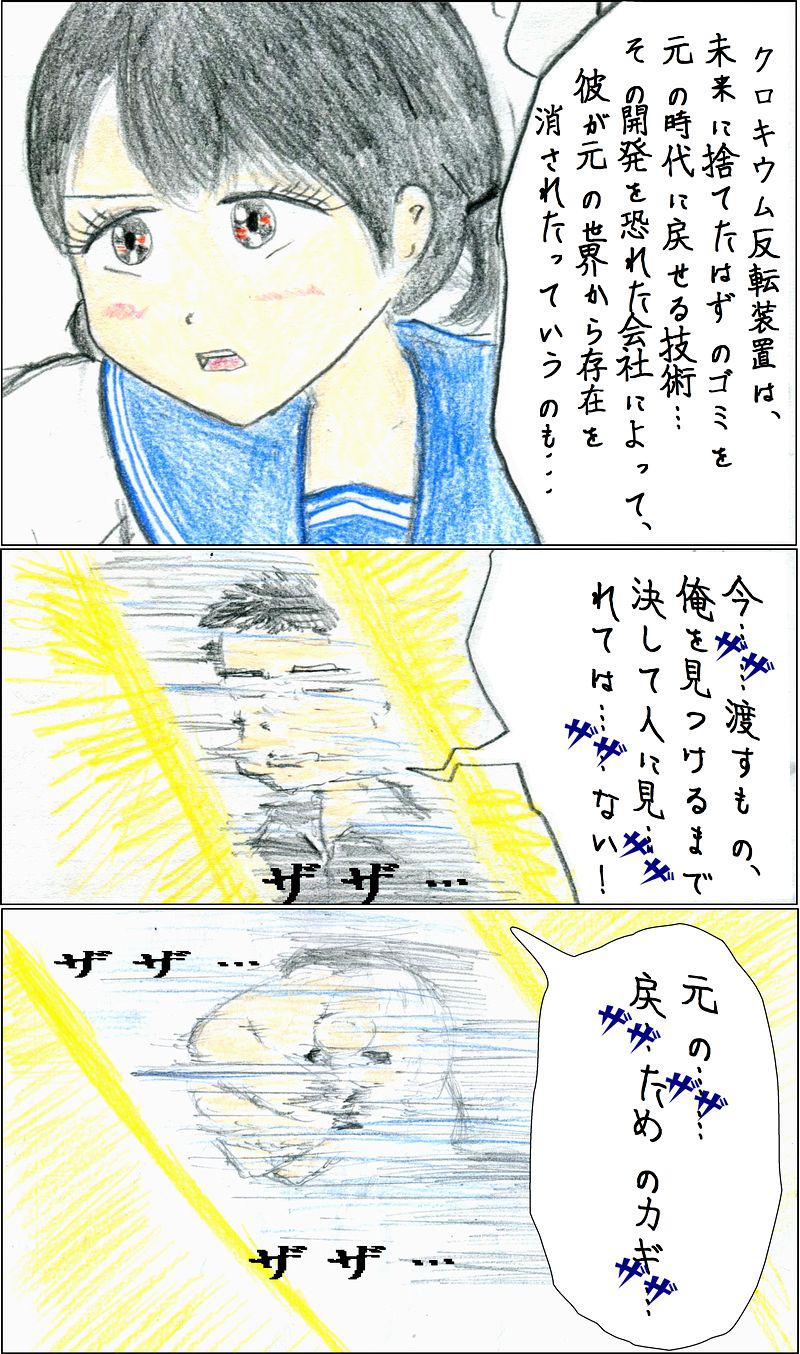 クロキウム反転装置は、
未来に捨てたはずのゴミを
元の時代に戻せる技術…
その開発を恐れた会社によって、
彼が元の世界から存在を
消されたっていうのも…
今…ザザ…渡すもの、
俺を見つけるまで
決して人に見…ザザ
れては…ザザ…ない！
ザザ…
ザザ…
元の…ザザ…
戻ザザ…ためのカギ…ザザ…
ザザ…